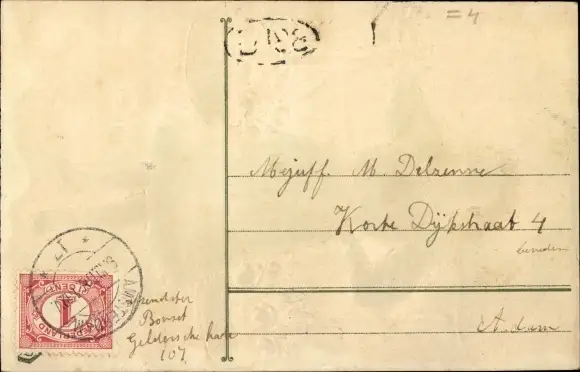 = 4
Mejuff. M. Delzenne
Korte Dijkstraat 4
beneden
A.dam
Bouset
Geldersche kade
107
1
CENT
NEDERLAND